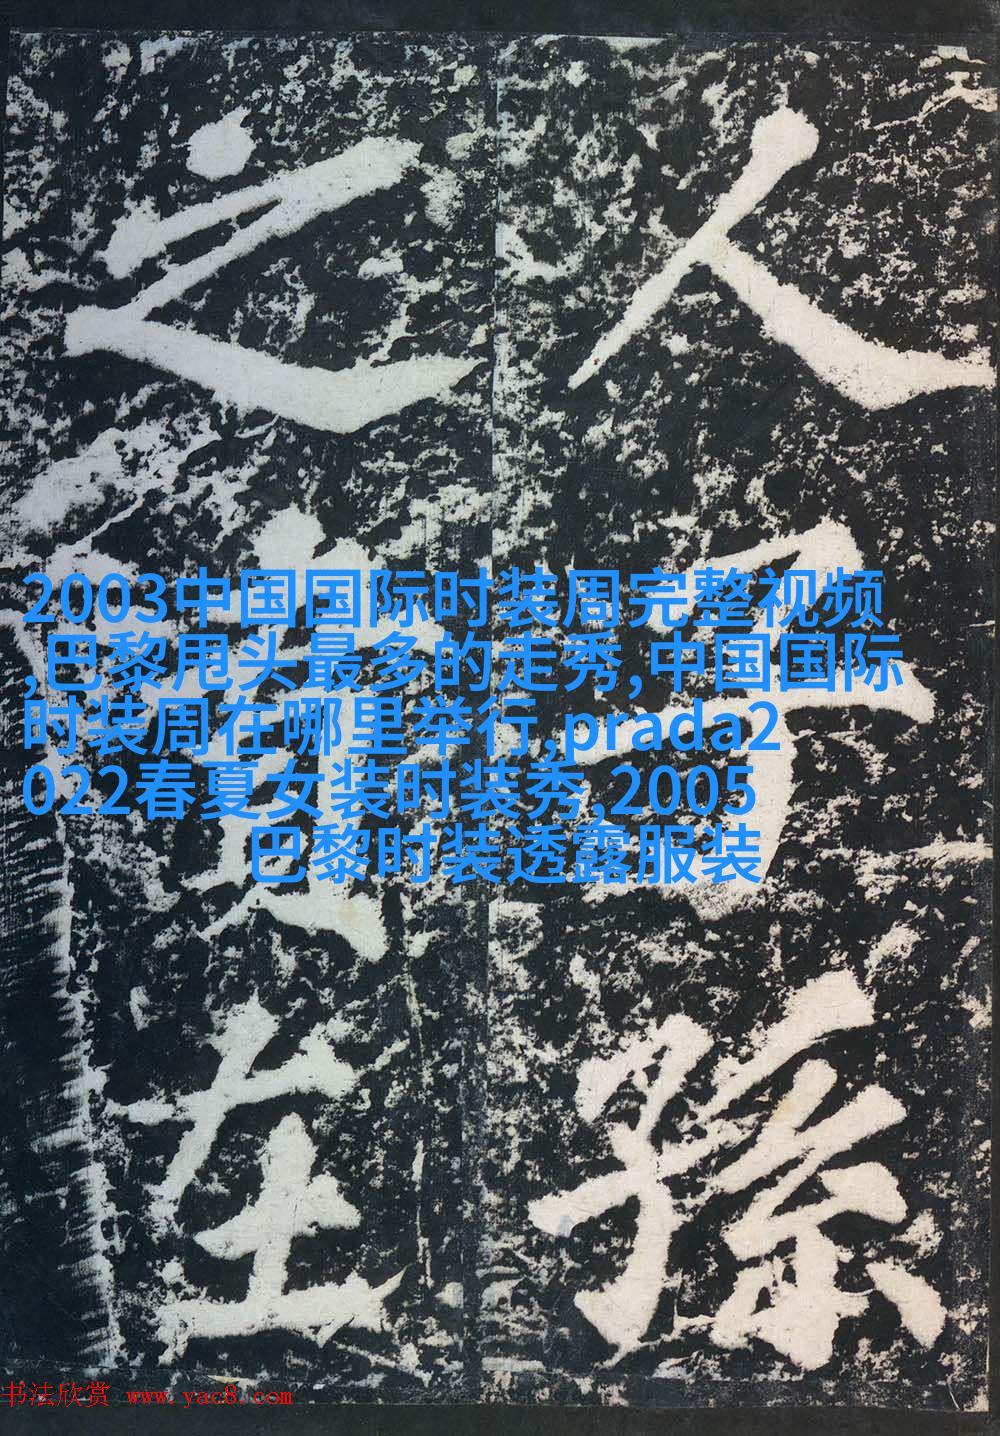 人子孫
之在
2003中国国际时装周完整视频
,巴黎甩头最多的走秀,中国国际
时装周在哪里举行,prada2
022春夏女装时装秀,2005
巴黎时装透露服装
书法欣赏 www.yac8.com